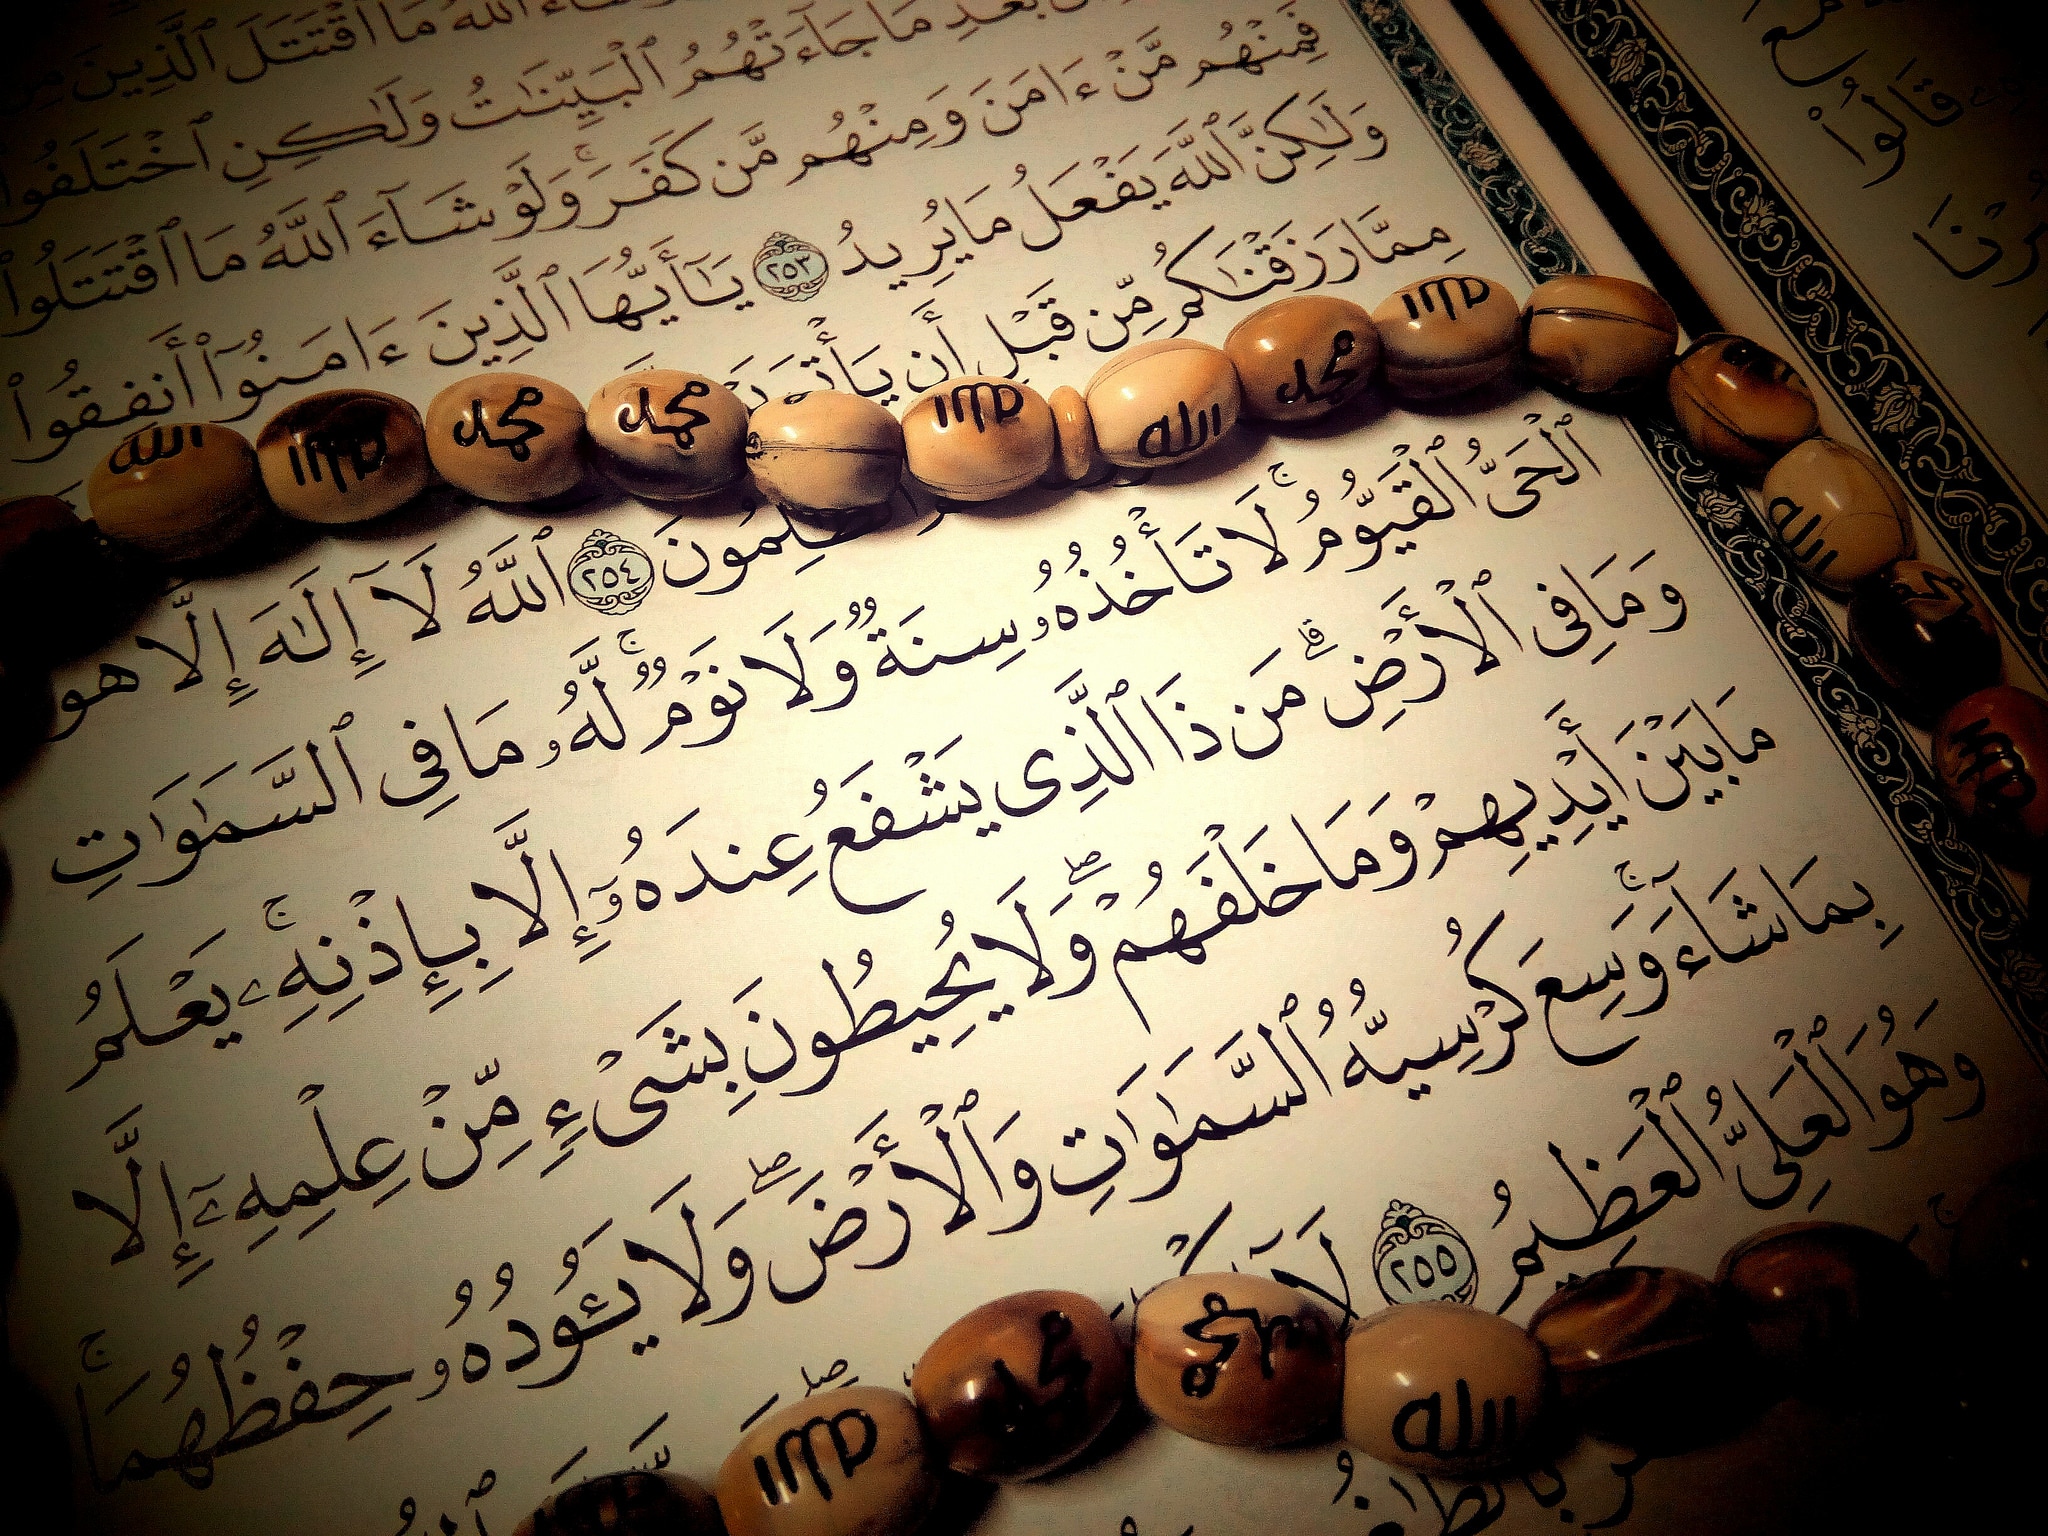 ٱللَّهُ مَا ٱقْتَتَلَ ٱلَّذِينَ مِنۢ
بَعْدِ مَا جَآءَتْهُمُ ٱلْبَيِّنَٰتُ وَلَٰكِنِ ٱخْتَلَفُوا۟
فَمِنْهُم مَّنْ ءَامَنَ وَمِنْهُم مَّن كَفَرَ ۚ وَلَوْ شَآءَ ٱللَّهُ مَا ٱقْتَتَلُوا۟
وَلَٰكِنَّ ٱللَّهَ يَفْعَلُ مَا يُرِيدُ ٢٥٣ يَٰٓأَيُّهَا ٱلَّذِينَ ءَامَنُوٓا۟ أَنفِقُوا۟
مِمَّا رَزَقْنَٰكُم مِّن قَبْلِ أَن يَأْتِىَ
ٱلظَّٰلِمُونَ ٢٥٤ ٱللَّهُ لَآ إِلَٰهَ إِلَّا هُوَ
ٱلْحَىُّ ٱلْقَيُّومُ ۚ لَا تَأْخُذُهُۥ سِنَةٌ وَلَا نَوْمٌ ۚ لَّهُۥ مَا فِى ٱلسَّمَٰوَٰتِ
وَمَا فِى ٱلْأَرْضِ ۗ مَن ذَا ٱلَّذِى يَشْفَعُ عِندَهُۥٓ إِلَّا بِإِذْنِهِۦ ۚ يَعْلَمُ
مَا بَيْنَ أَيْدِيهِمْ وَمَا خَلْفَهُمْ ۖ وَلَا يُحِيطُونَ بِشَىْءٍ مِّنْ عِلْمِهِۦٓ إِلَّا
بِمَا شَآءَ ۚ وَسِعَ كُرْسِيُّهُ ٱلسَّمَٰوَٰتِ وَٱلْأَرْضَ ۖ وَلَا يَـُٔودُهُۥ حِفْظُهُمَا ۚ
وَهُوَ ٱلْعَلِىُّ ٱلْعَظِيمُ ٢٥٥ لَآ
قَالُوا۟
الله
الله
محمد
محمد
الله
الله
محمد
الله
الله
محمد
الله
الله
محمد
محمد
الله